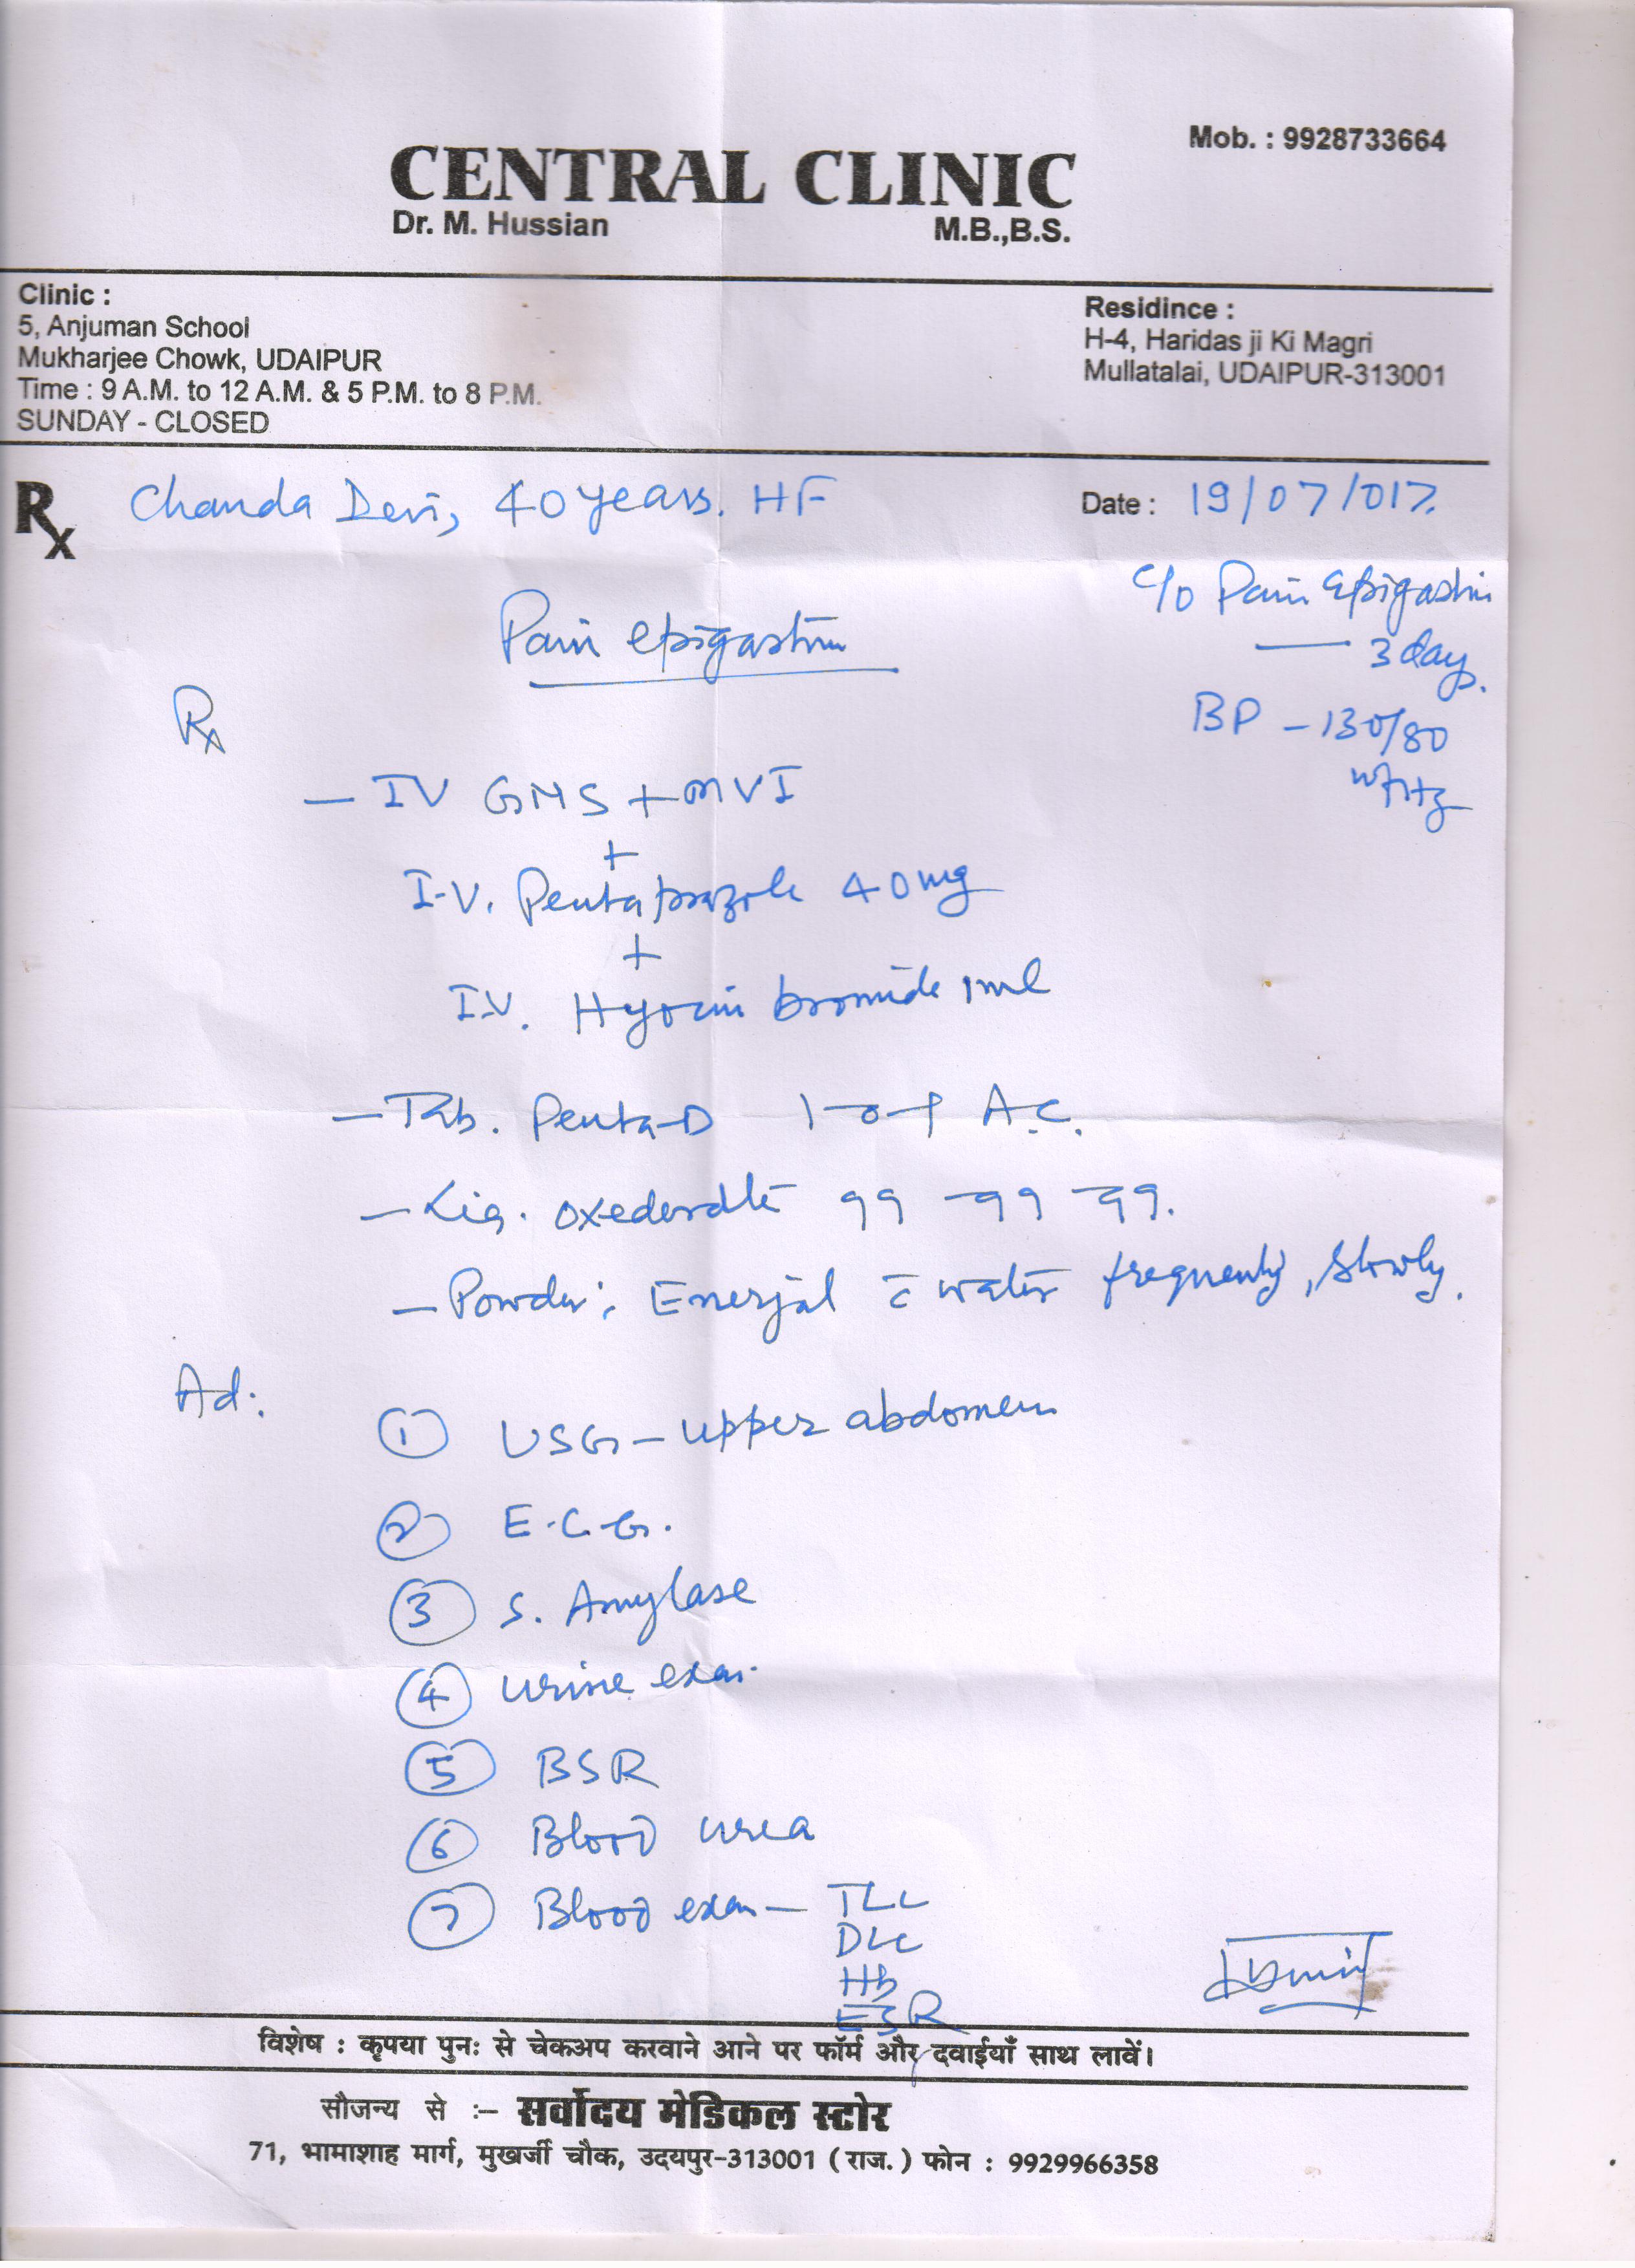 Mob. : 9928733664
CENTRAL CLINIC
Dr. M. Hussian M.B.,B.S.
Clinic :
5, Anjuman School
Mukharjee Chowk, UDAIPUR
Time : 9 A.M. to 12 A.M. & 5 P.M. to 8 P.M.
SUNDAY - CLOSED
Residince :
H-4, Haridas ji Ki Magri
Mullatalai, UDAIPUR-313001
Rx Chanda Devi, 40 years. HF Date : 19/07/017.
C/o Pain epigastrium
— 3 day.
BP - 130/80
Pain epigastrium
Rx
— IV GNS + MVI
+
I.V. Pentaprazole 40 mg
+
I.V. Hyocin bromide 1ml
— Tab. Penta-D 1-0-1 A.C.
— Liq. 99 - 99 - 99.
— Powder: Enerjal c̄ water frequently, slowly.
Ad:
① USG - upper abdomen
② E.C.G.
③ S. Amylase
④ Urine exam.
⑤ BSR
⑥ Blood urea
⑦ Blood exam — TLC
DLC
Hb
ESR
विशेष : कृपया पुनः से चेकअप करवाने आने पर फॉर्म और दवाईयाँ साथ लावें।
सौजन्य से :– सर्वोदय मेडिकल स्टोर
71, भामाशाह मार्ग, मुखर्जी चौक, उदयपुर-313001 (राज.) फोन : 9929966358